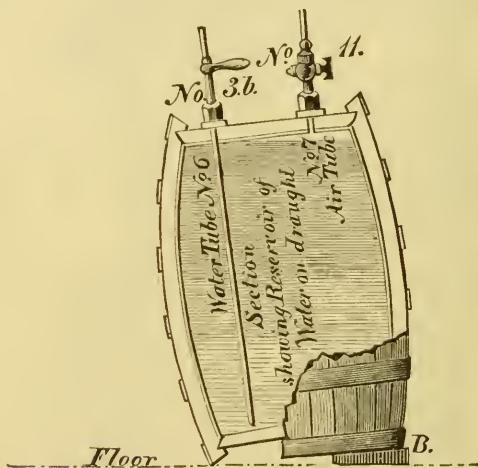 No 11.
No 3.b.
Water Tube No 6
Section
showing Reservoir of
Water on draught
No 7
Air Tube
B.
Floor